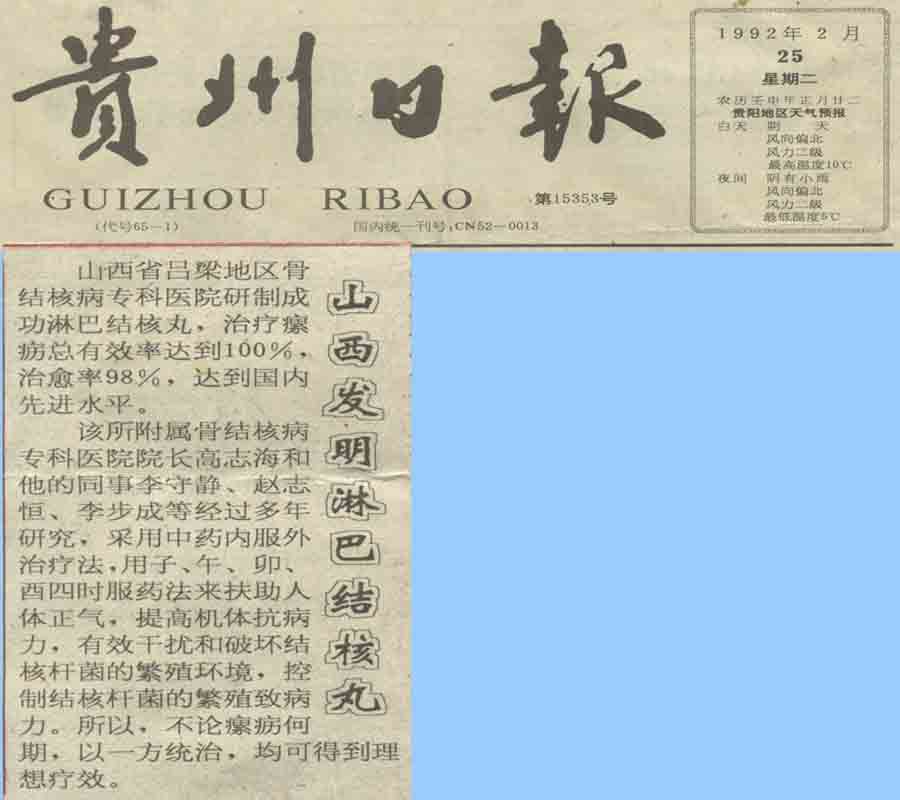 貴州日報
GUIZHOU RIBAO
第15353号
(代号65—1)
国内统一刊号:CN52—0013
1992年2月
25
星期二
农历壬申年正月廿二
贵阳地区天气预报
白天 阴 天
风向偏北
风力二级
最高温度10℃
夜间 阴有小雨
风向偏北
风力二级
最低温度5℃
山西发明淋巴结核丸
山西省吕梁地区骨
结核病专科医院研制成
功淋巴结核丸，治疗瘰
疬总有效率达到100%，
治愈率98%，达到国内
先进水平。
该所附属骨结核病
专科医院院长高志海和
他的同事李守静、赵志
恒、李步成等经过多年
研究，采用中药内服外
治疗法，用子、午、卯、
酉四时服药法来扶助人
体正气，提高机体抗病
力，有效干扰和破坏结
核杆菌的繁殖环境，控
制结核杆菌的繁殖致病
力。所以，不论瘰疬何
期，以一方统治，均可得到理
想疗效。